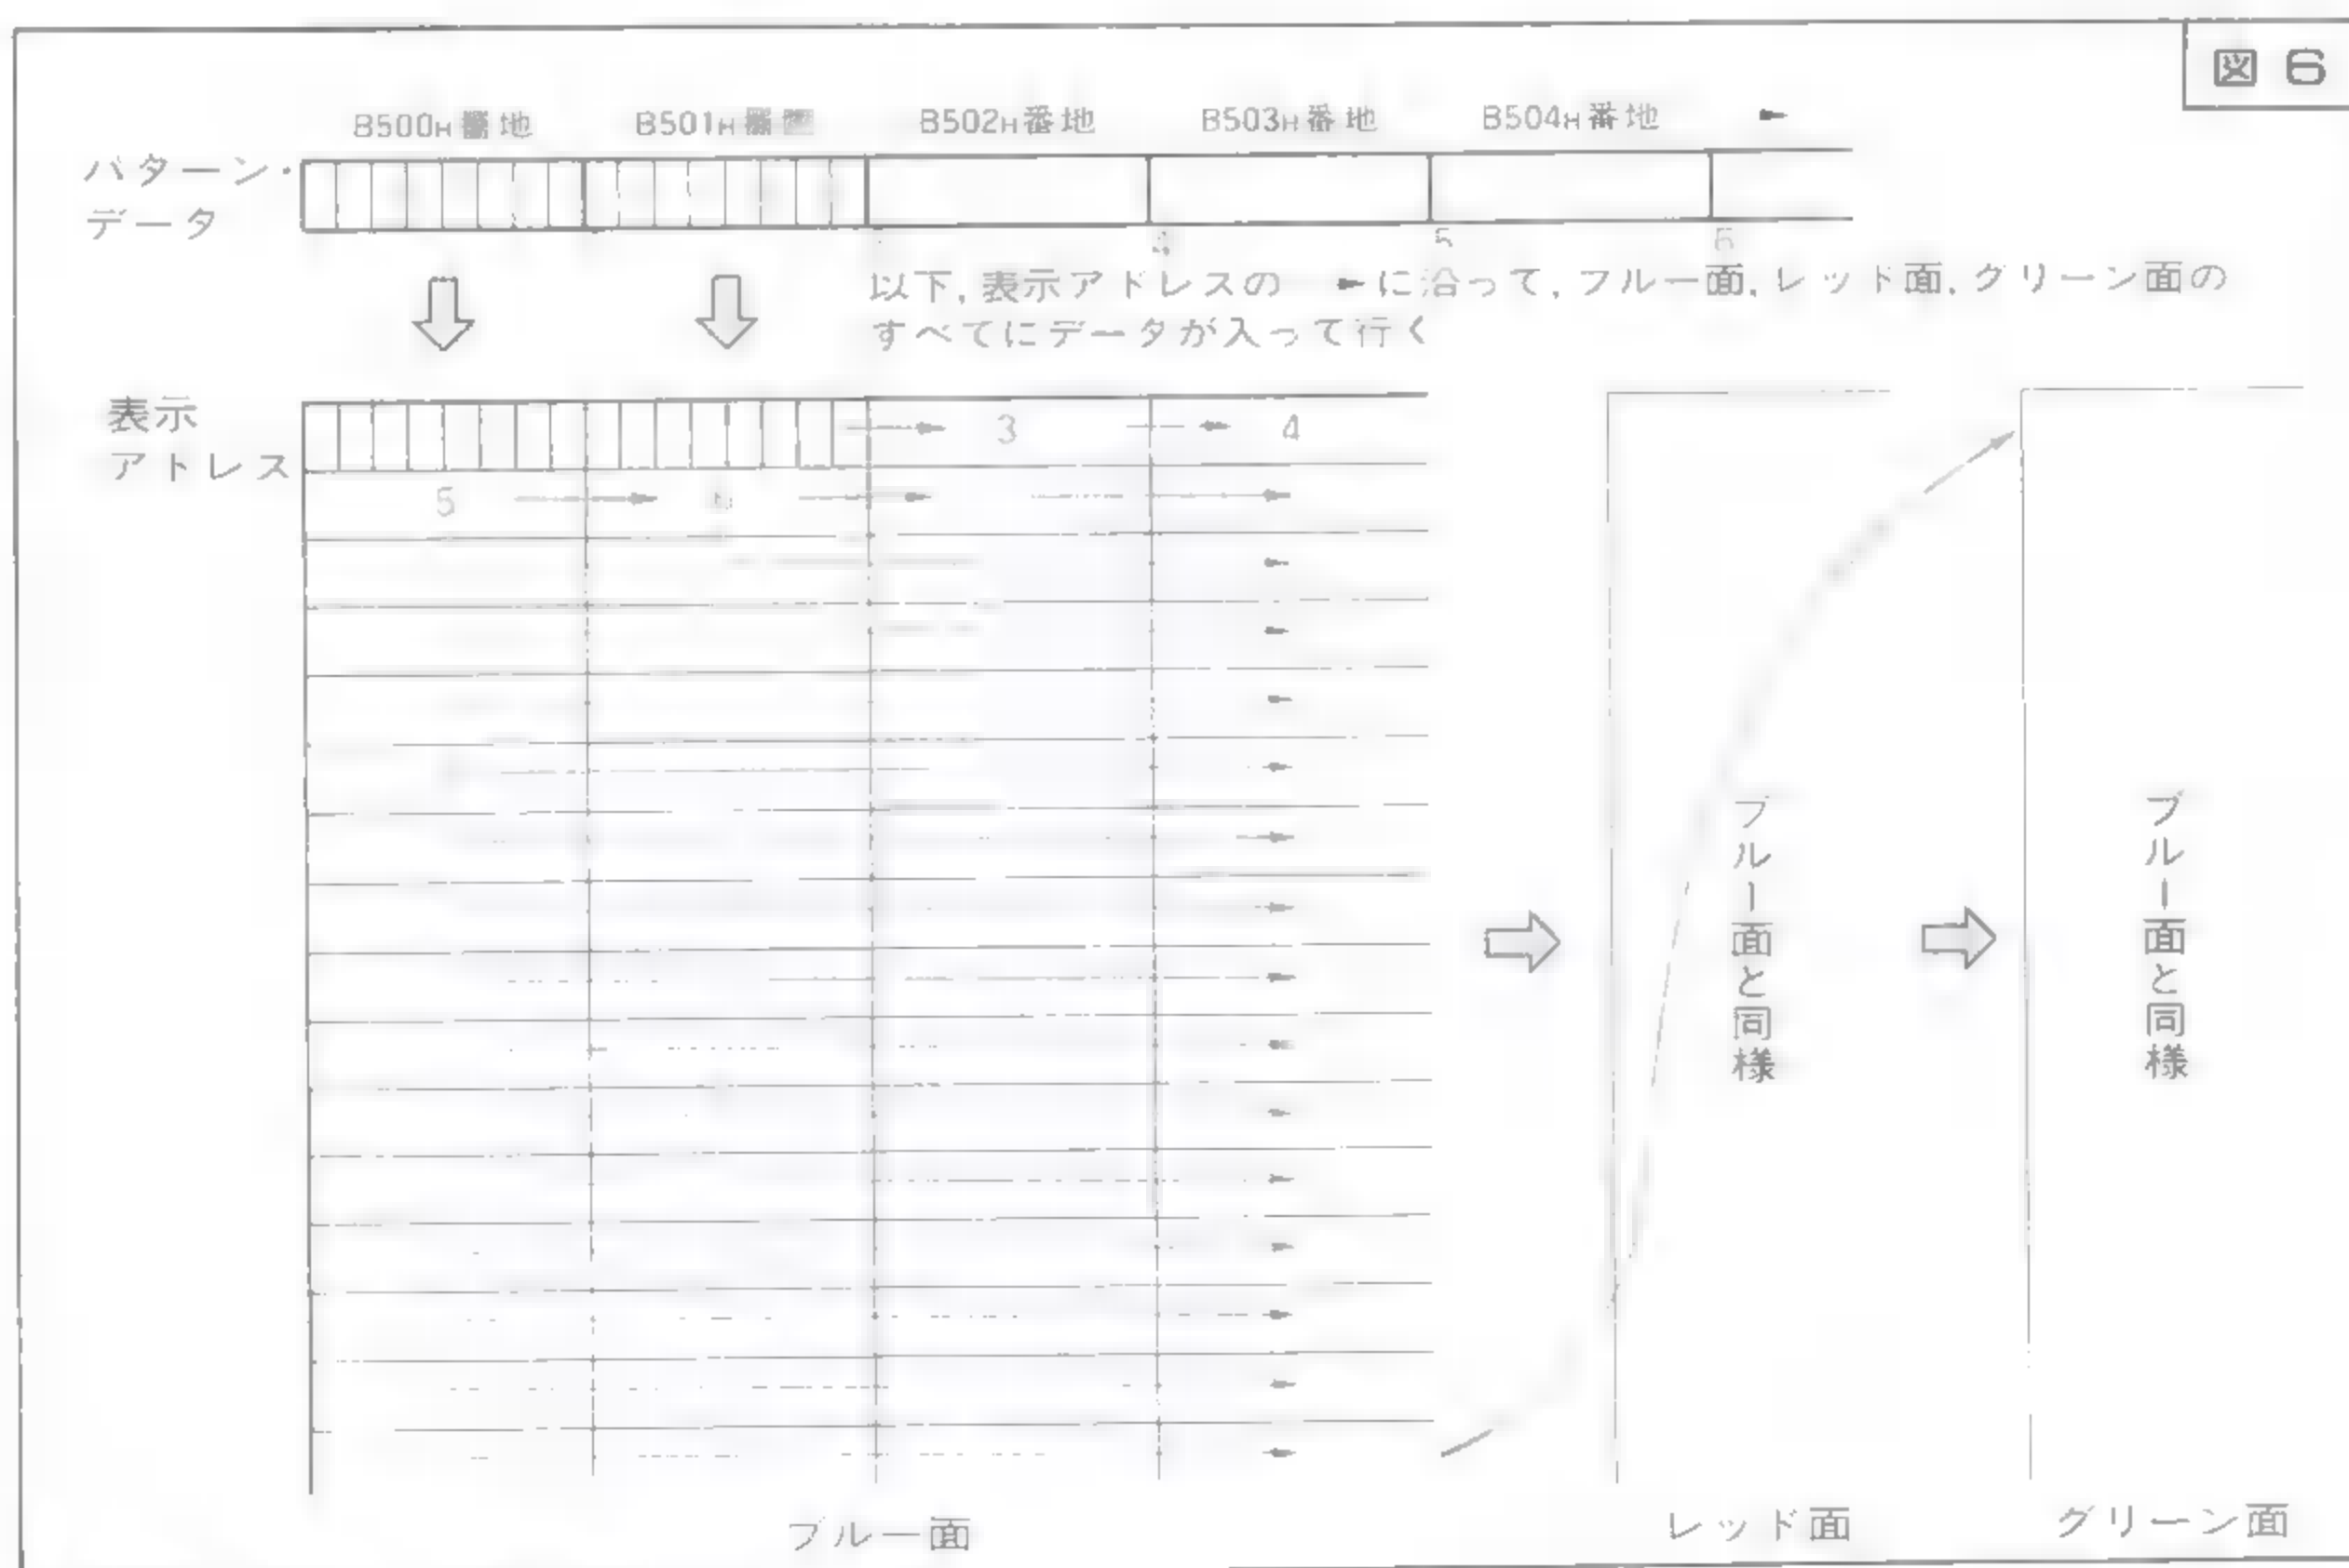 図 6
B500H番地 B501H B502H番地 B503H番地 B504H番地
パターン・
データ
4 5 6
以下, 表示アドレスの に沿って, ブルー面, レッド面, グリーン面の
すべてにデータが入って行く
表示
アドレス
3 4
5
ブルー面と同様
ブルー面と同様
ブルー面 レッド面 グリーン面